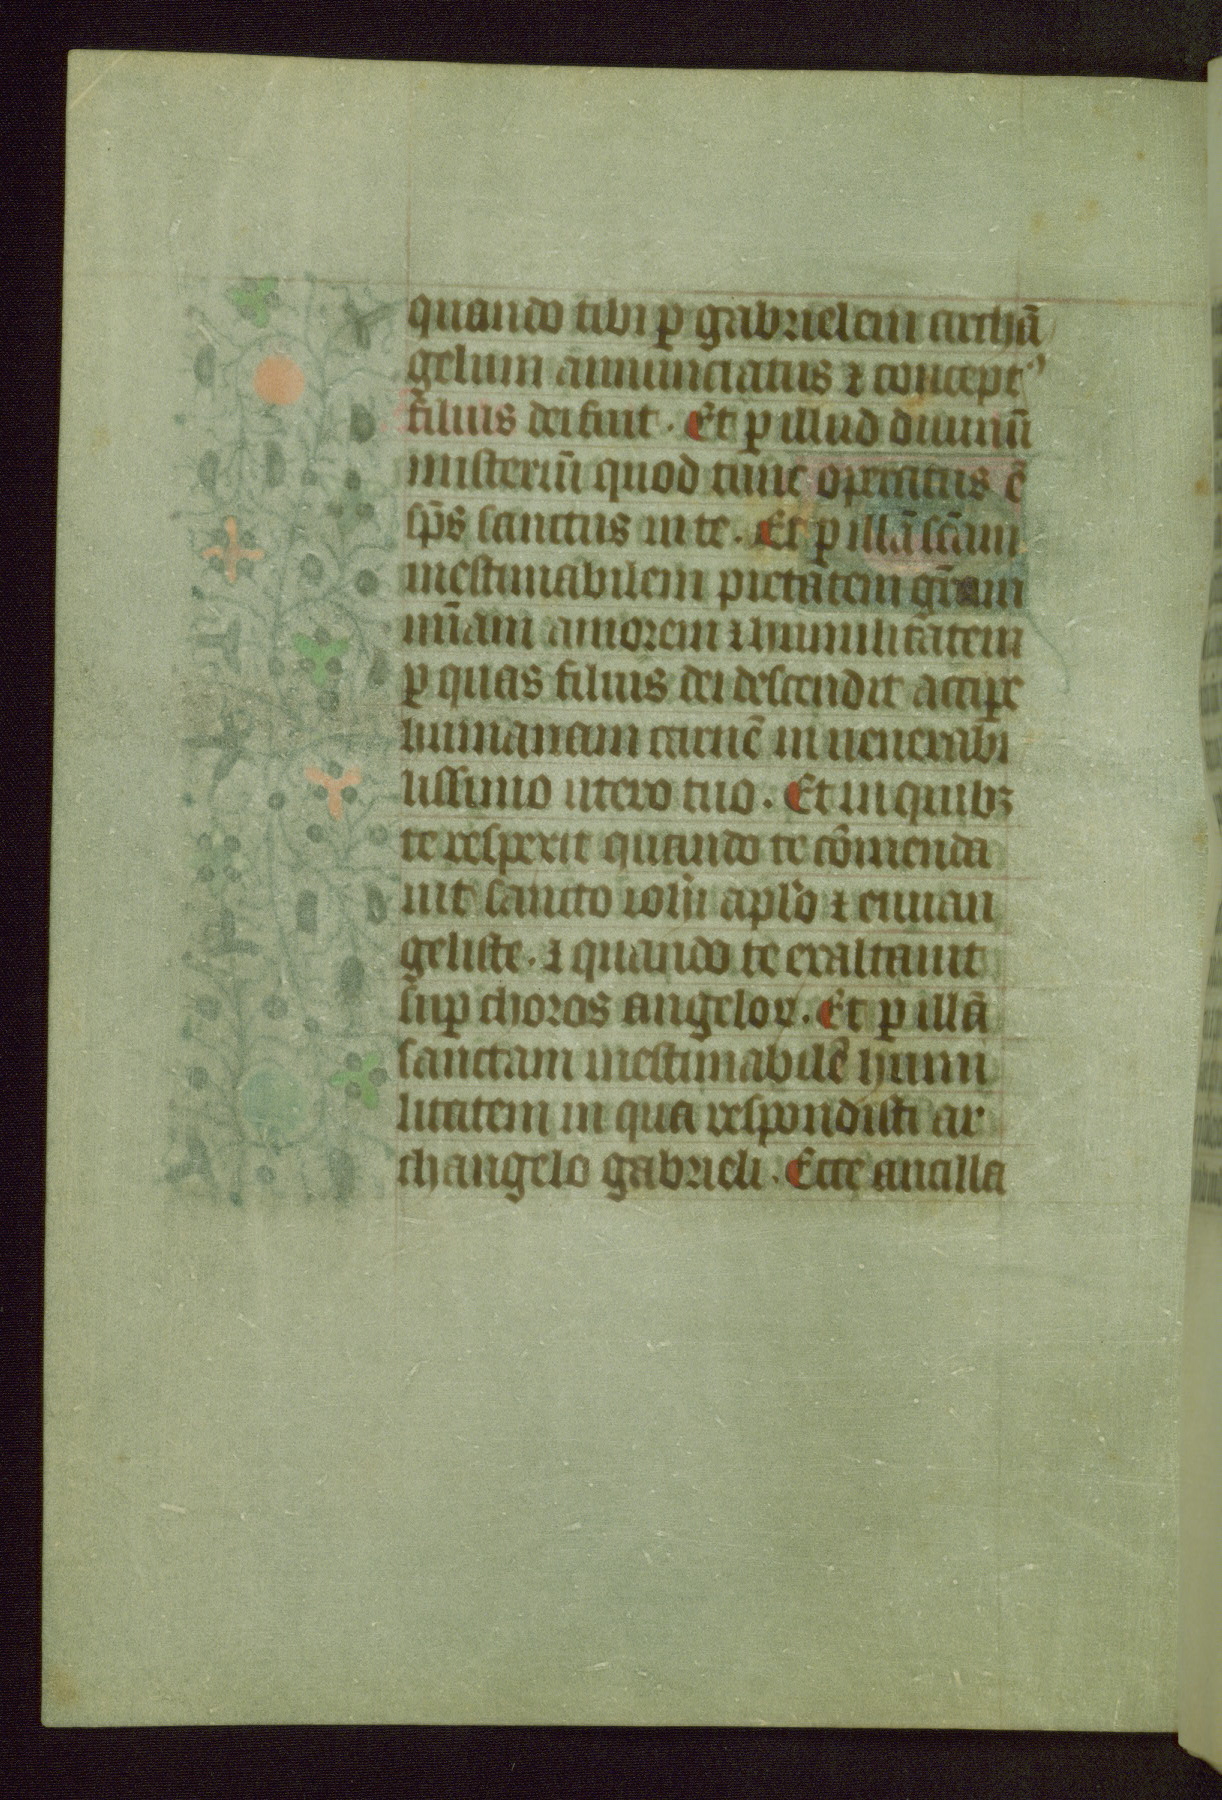 quando tibi ꝑ gabrielem archā
gelum annunciatus ⁊ concept᾿
filius dei fuit. Et ꝑ illud diuinū
misteriū quod tunc operatus ē
sp̄s sanctus in te. Et ꝑ illā sc̄am
inestimabilem pietatem gr̄am
mīam amorem ⁊ humilitatem
ꝑ quas filius dei descendit acciꝑe
humanam carnē in uenerabi
lissimo utero tuo. Et in quibꝫ
te respexit quando te cōmenda
uit sancto ioh̄i apl̄o ⁊ euuan
geliste. ⁊ quando te exaltauit
suꝑ choros angeloꝝ. Et ꝑ illā
sanctam inestimabilē humi
litatem in qua respondisti ar
changelo gabrieli. Ecce ancilla